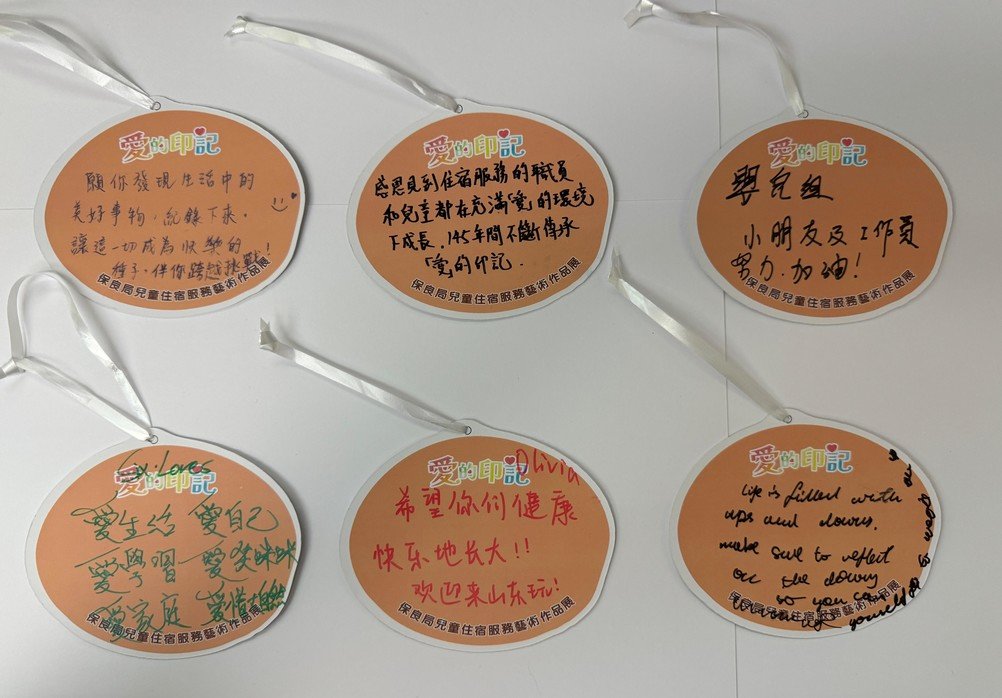 愛的印記
願你發現生活中的
美好事物，紀錄下來。
讓這一切成為快樂的
種子，伴你跨越挑戰！
保良局兒童住宿服務藝術作品展
愛的印記
感恩見到住宿服務的職員
和兒童都在充滿「愛」的環境
下成長，145年間不斷傳承
「愛」的印記．
保良局兒童住宿服務藝術作品展
愛的印記
與兒組
小朋友及工作員
努力．加油！
保良局兒童住宿服務藝術作品展
愛的印記
Loves
愛生活 愛自己
愛學習 愛
愛家庭 愛
保良局兒童住宿服務藝術作品展
愛的印記
Olivia
希望你们健康
快乐地长大!!
欢迎来山东玩!
保良局兒童住宿服務藝術作品展
愛的印記
Life is filled with
ups and downs.
make sure to reflect
on the downs
so you can
yourself
保良局兒童住宿服務藝術作品展